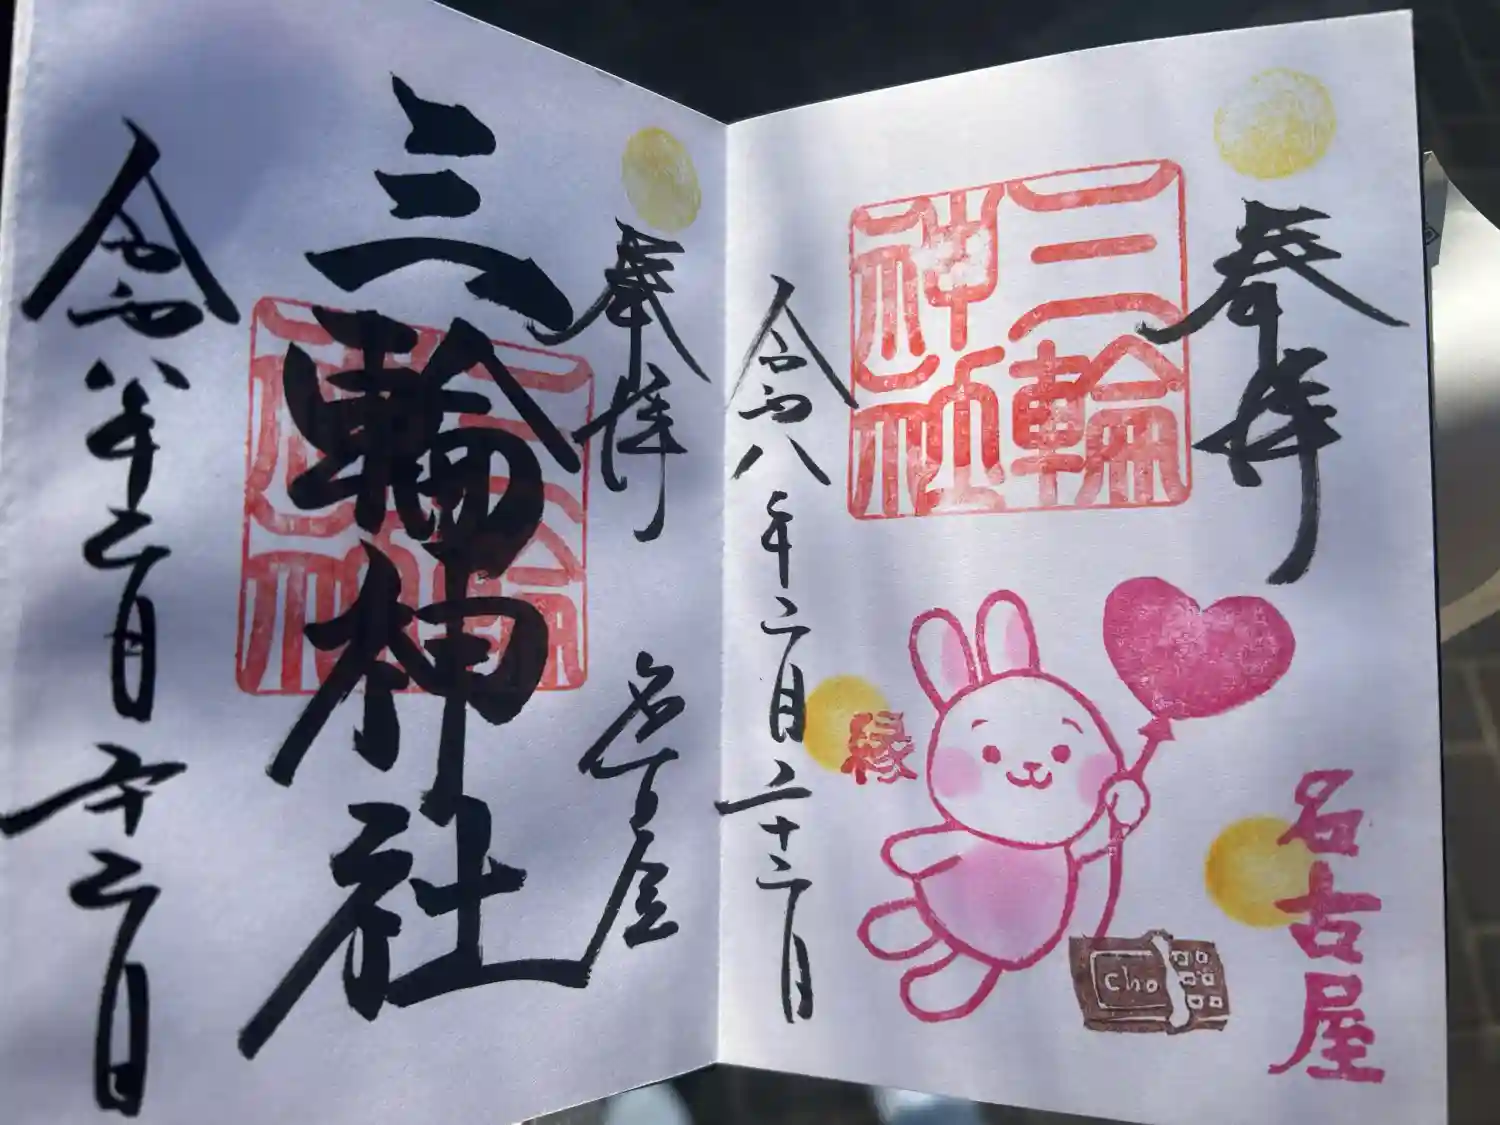 奉拝
三輪神社
令和八年二月二十二日
縁
cho
名古屋
奉拝
名古屋
三輪神社
三輪神社
令和八年二月二十二日